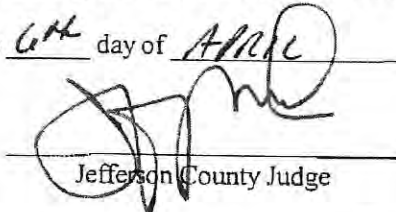 6th day of APRIL
Jefferson County Judge